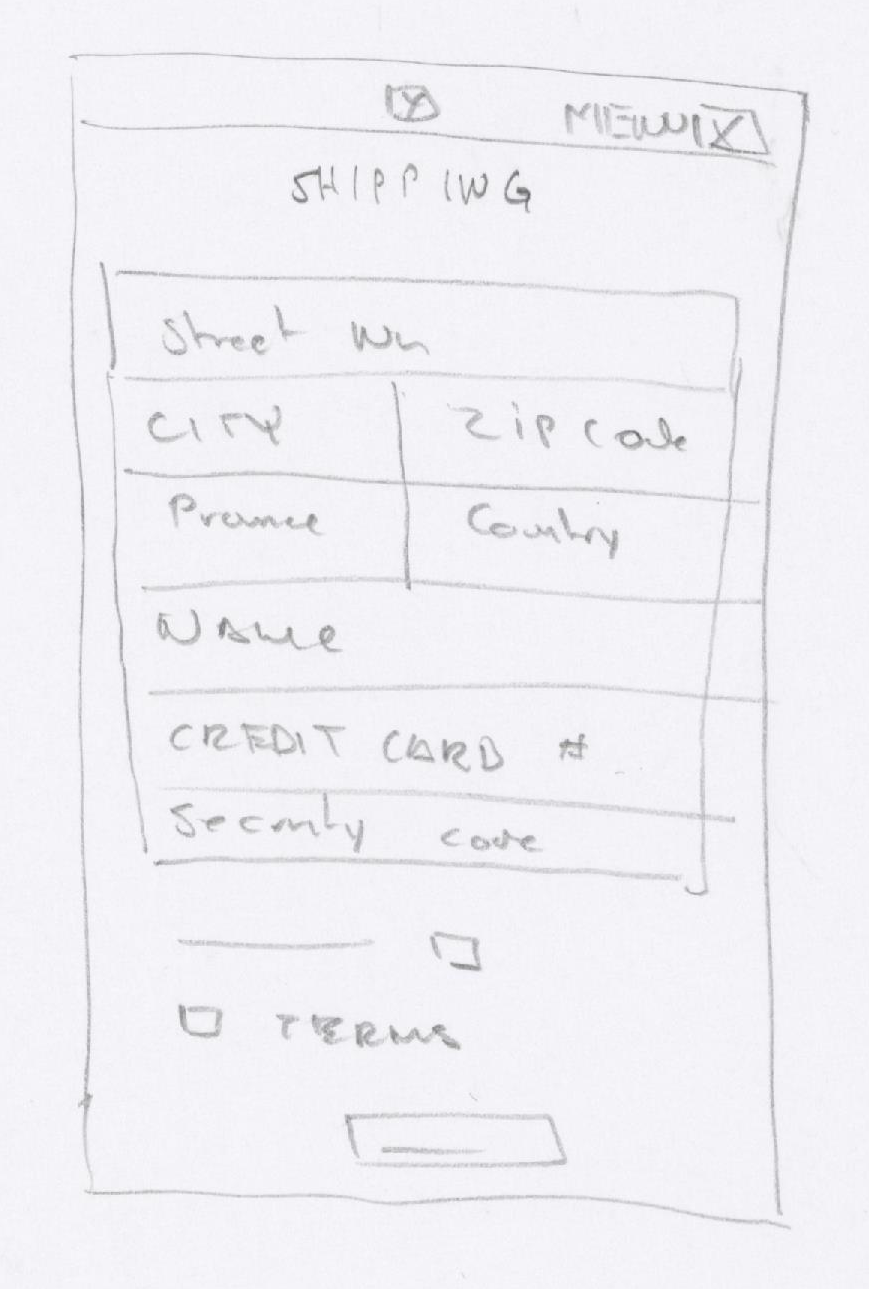 MENU
SHIPPING
Street
CITY
Zip Code
Province
Country
Name
CREDIT CARD #
Security code
TERMS